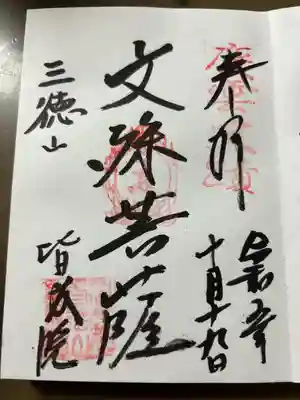 奉拝
令和
十月十九日
文殊菩薩
三徳山
皆成院